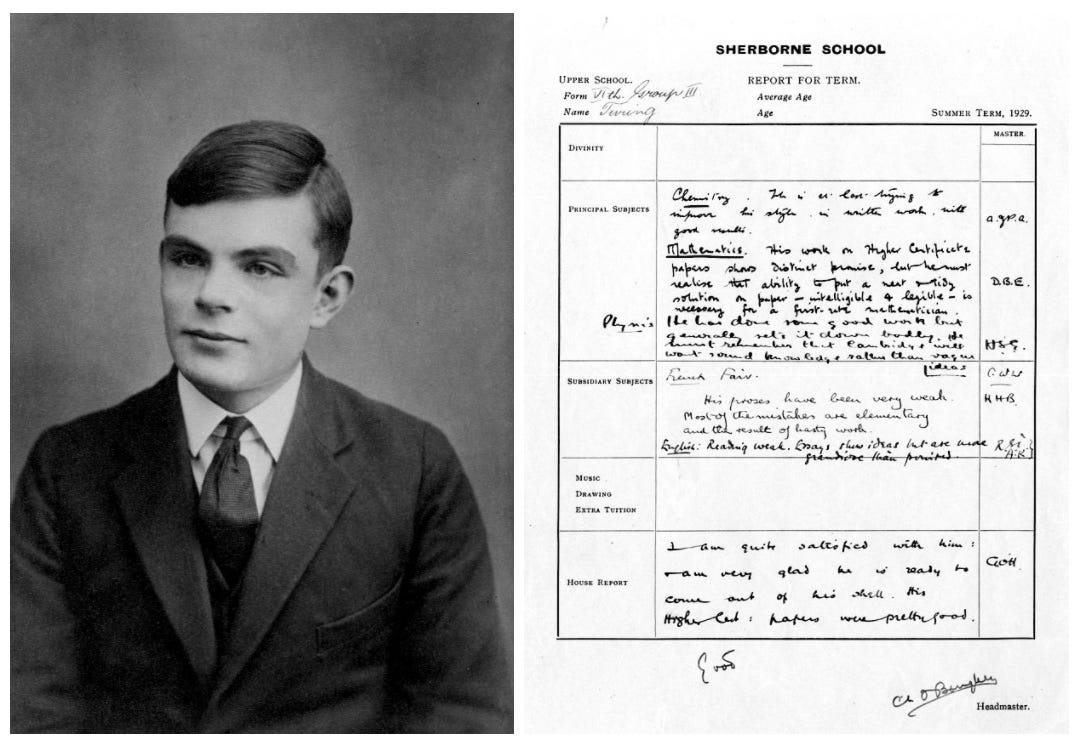 SHERBORNE SCHOOL
UPPER SCHOOL.
REPORT FOR TERM.
Form VIth. Group III.
Average Age
Name Turing
Age
SUMMER TERM, 1929.
MASTER.
DIVINITY
PRINCIPAL SUBJECTS
Chemistry. He is at last trying to
improve his style in written work with
good results.
Mathematics. His work on Higher Certificate
papers shows distinct promise, but he must
realise that ability to put a neat & tidy
D.B.E.
solution on paper – intelligible & legible – is
necessary for a first-rate mathematician.
Physics
He has done some good work but
generally sets it down badly. He
must remember that Cambridge will
H.S.G.
want sound knowledge rather than vague
ideas
SUBSIDIARY SUBJECTS
French Fair.
His proses have been very weak.
H H B.
Most of the mistakes are elementary
and the result of hasty work.
English: Reading weak. Essays show ideas but are more
grandiose than
MUSIC
DRAWING
EXTRA TUITION
HOUSE REPORT
I am quite satisfied with him:
I am very glad he is ready to
come out of his shell. His
Higher Cert: papers were pretty good.
Good
Headmaster.